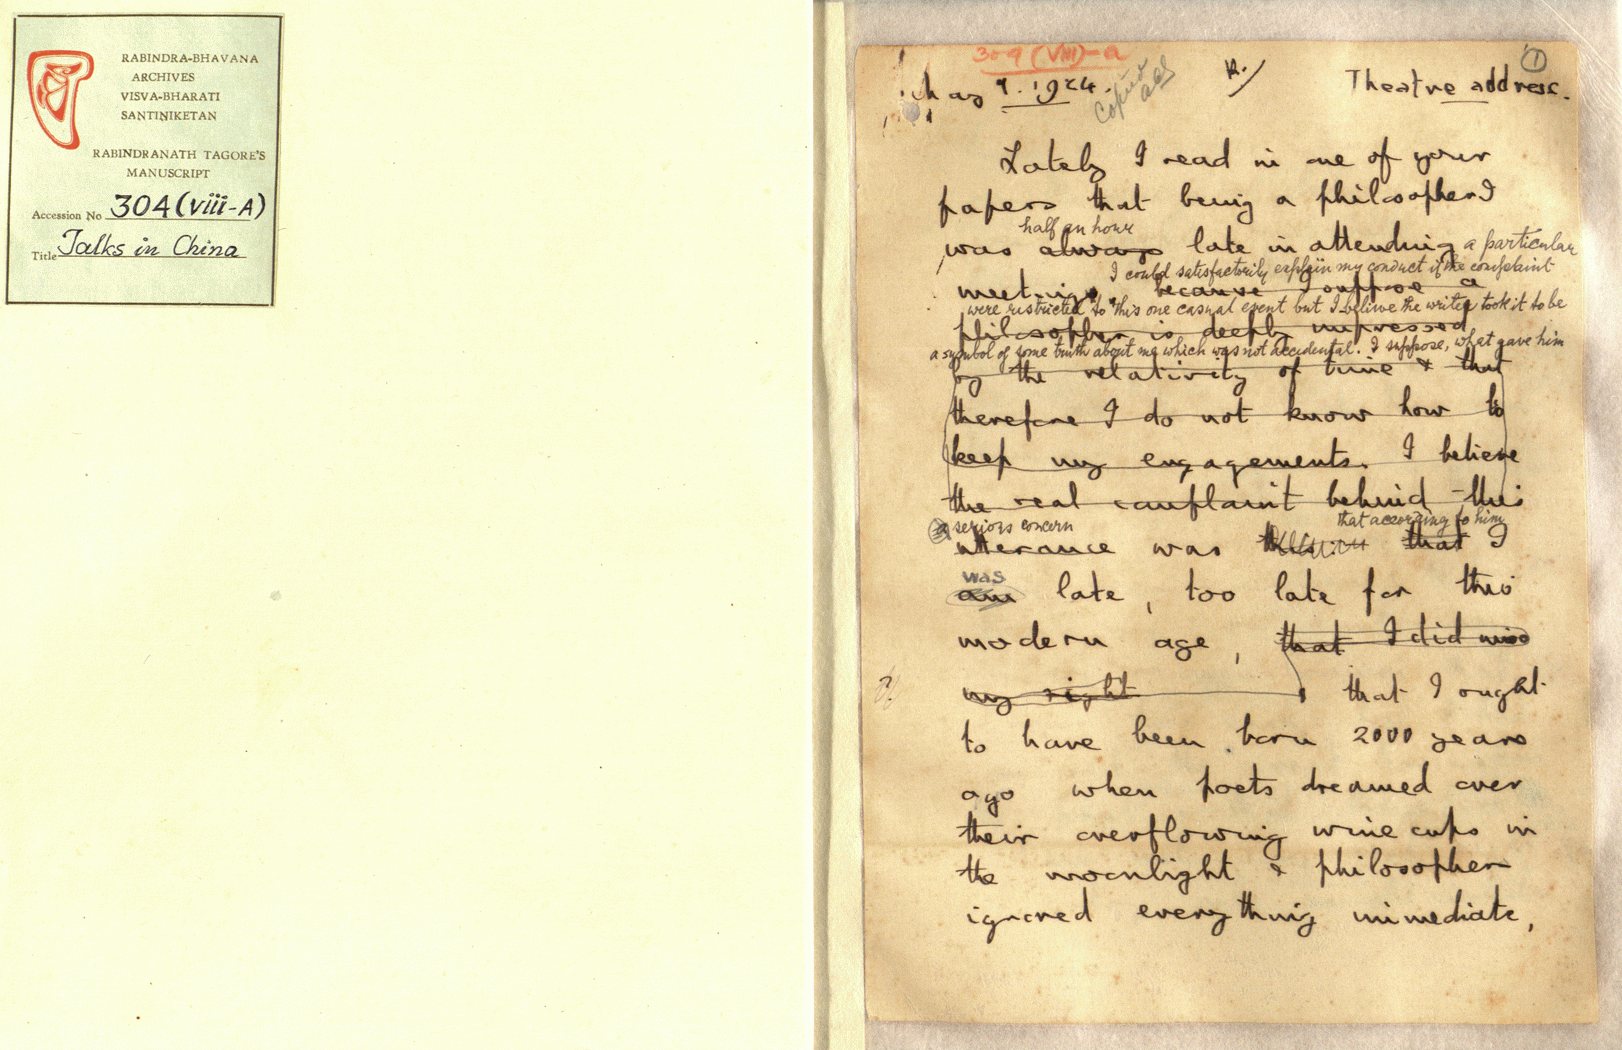 RABINDRA-BHAVANA
ARCHIVES
VISVA-BHARATI
SANTINIKETAN
RABINDRANATH TAGORE'S
MANUSCRIPT
Accession No 304(viii-A)
Title Talks in China
309 (VIII)-a
1
May 9. 1924.
Copied
Theatre address.
Lately I read in one of your
papers that being a philosopher I
half an hour
was always late in attending a particular
I could satisfactorily explain my conduct if the complaint
meetings because I suppose a
were restricted to this one casual event but I believe the writer took it to be
philosopher is deeply impressed
a symbol of some truth about me which was not accidental. I suppose, what gave him
by the relativity of time & that
therefore I do not know how to
keep my engagements. I believe
the real complaint behind this
a serious concern that according to him
utterance was that I
was
am late, too late for this
modern age, that I did miss
my right that I ought
to have been born 2000 years
ago when poets dreamed over
their overflowing wine cups in
the moonlight & philosophers
ignored everything immediate,